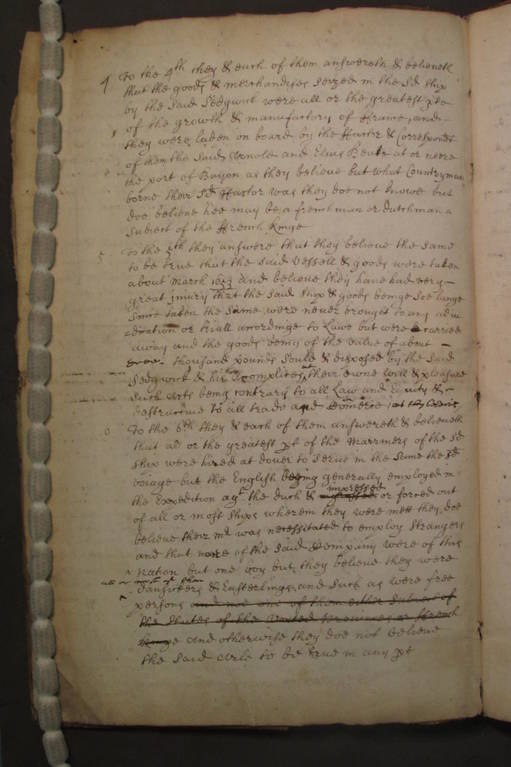 4 To the 4th they & each of them answereth & believeth
that the goods & merchandises seized in the sd ship
by the said Sedgwick were all or the greatest pte
of the growth & manufactory of France, and
they were laden on board by the Factor & Correspondt
of them the said Arnole and Elias at or neere
the port of Bayon as they believe but what Countryman
borne their sd Factor was they doe not knowe but
doe believe hee may be a frenchman or dutchman a
subiect of the ffrench Kinge
5 To the 5th they answere that they believe the same
to be true that the said vessell & goods were taken
about March and believe they have had very
great iniury that the said ship & goods beinge soe longe
since taken the same were never brought to any
or triall accordinge to Lawe but were carried
away and the goods being of the value of about
thousand pounds sould & disposed by the said
Sedgwick & his Complices, their owne will & pleasure
such Acts being contrary to all Law and Equity &
destructive to all trade and Comerce
6 To the 6th they & each of them answereth & believeth
that all or the greatest pt of the Marriners of the sd
ship were hired at dover to serve in the same the sd
voiage but the English being generally employed in
the Expedition agt the duch & impressed or forced out
of all or most ships wherein they were mett they doe
believe their mr was necessitated to employ strangers
and that none of the said Company were of this
Nation but one boy but they believe they were
Danswers & Easterlings and such as were free
persons and not one of them either subiect of
the States of the united Provinces or ffrench
Kinge and otherwise they doe not believe
the said Arle to be true in any pt